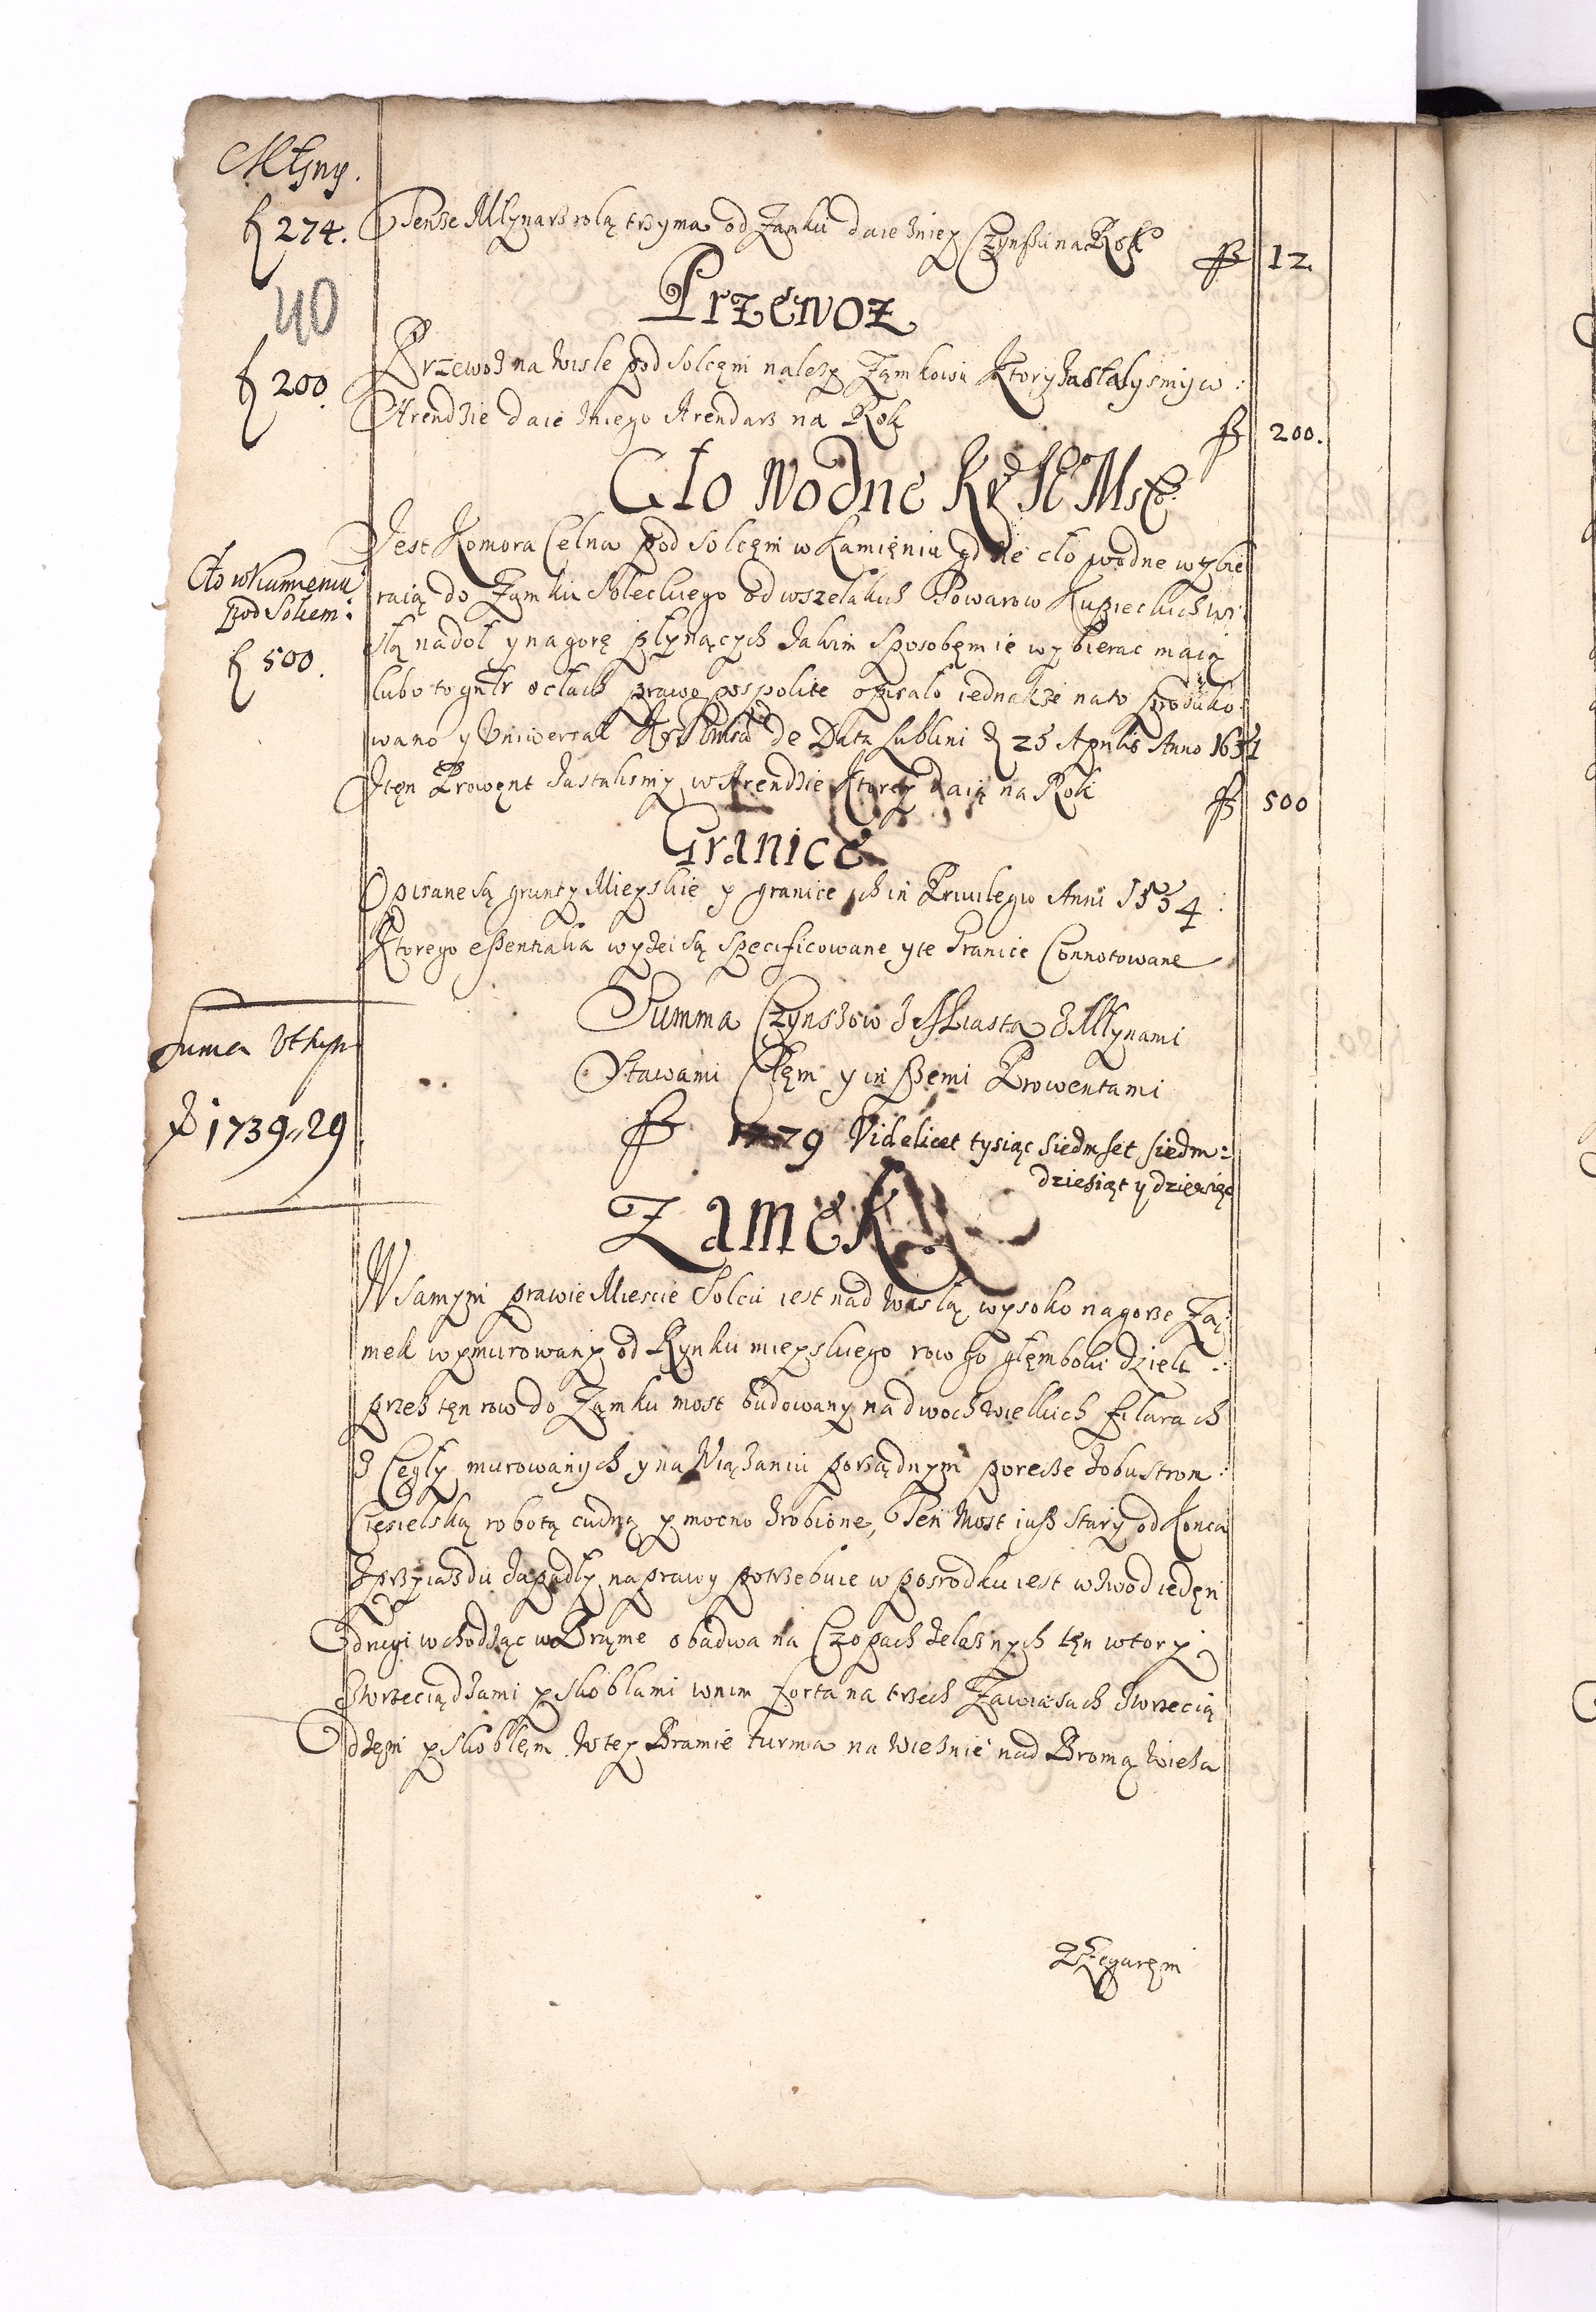 Młyny.
f 274.
40
Tenże Młynarz rolą trzyma od Zamku daie zniey Czynszu na Rok fl 12.
Przewoz
f 200.
Przewoz na Wisle pod Solcęm nalezy Zamkowi Ktory zastalysmy w
Arendzie daie zniego Arendarz na Rok fl 200.
Cło Wodne
Cło w Kamieniu
pod Solcem:
f 500.
Jest Komora Celna pod Solcęm w Kamięniu gdzie cło wodne wybie
raią do Zamku Soleckiego od wszelakich Towarow Kupieckich wi
słą nadoł y na gorę płynących Jakim Sposobęm ie wybierac maią
lubo to o cłach prawo pospolite opisało iednakże na to produko
wano y Uniwersał de Data Lublini 25 Aprilis Anno
Ięn Prowęnt zastalismy w Arendzie Ktorey daią na Rok fl 500
Granice
Opisane są grunty Mieyskie y granice ich in Privilegio Anni 1554
Ktorego essentialia wyżei są specificowane y te Granice Connotowane
Summa Czynszow z Miasta z Młynami
Stawami Cłęm y in szemi Prowentami
Suma
1739,,29
fl 1779 Videlicet tysiąc siedmset siedm:
dziesiąt y dziewięc
Zamek
W samym prawie Miescie Solcu iest nad Wisłą wysoko na gorze Za
mek wymurowany od Rynku mieyskiego row go głęmboki dzieli
przez tęn row do Zamku most budowany na dwoch wielkich filarach
z Cegły murowanych y na Wiązaniu porządnym poręcze z obu stron
Ciesielską robotą cudną y mocno zrobione, Ten Most iusz stary od Konca
z przyiazdu zapadły naprawy potrzebuie w posrodku iest wzwod iedęn
drugi wchodząc w Bramę obadwa na Czopach żelaznych tęn wtory
z wrzeciądzami y skoblami w nim forta na trzech Zawiasach z wrzecią
dzęm y skoblęm w tey Bramie turma na Wieznie nad Bromą Wieza
Z Zegaręm